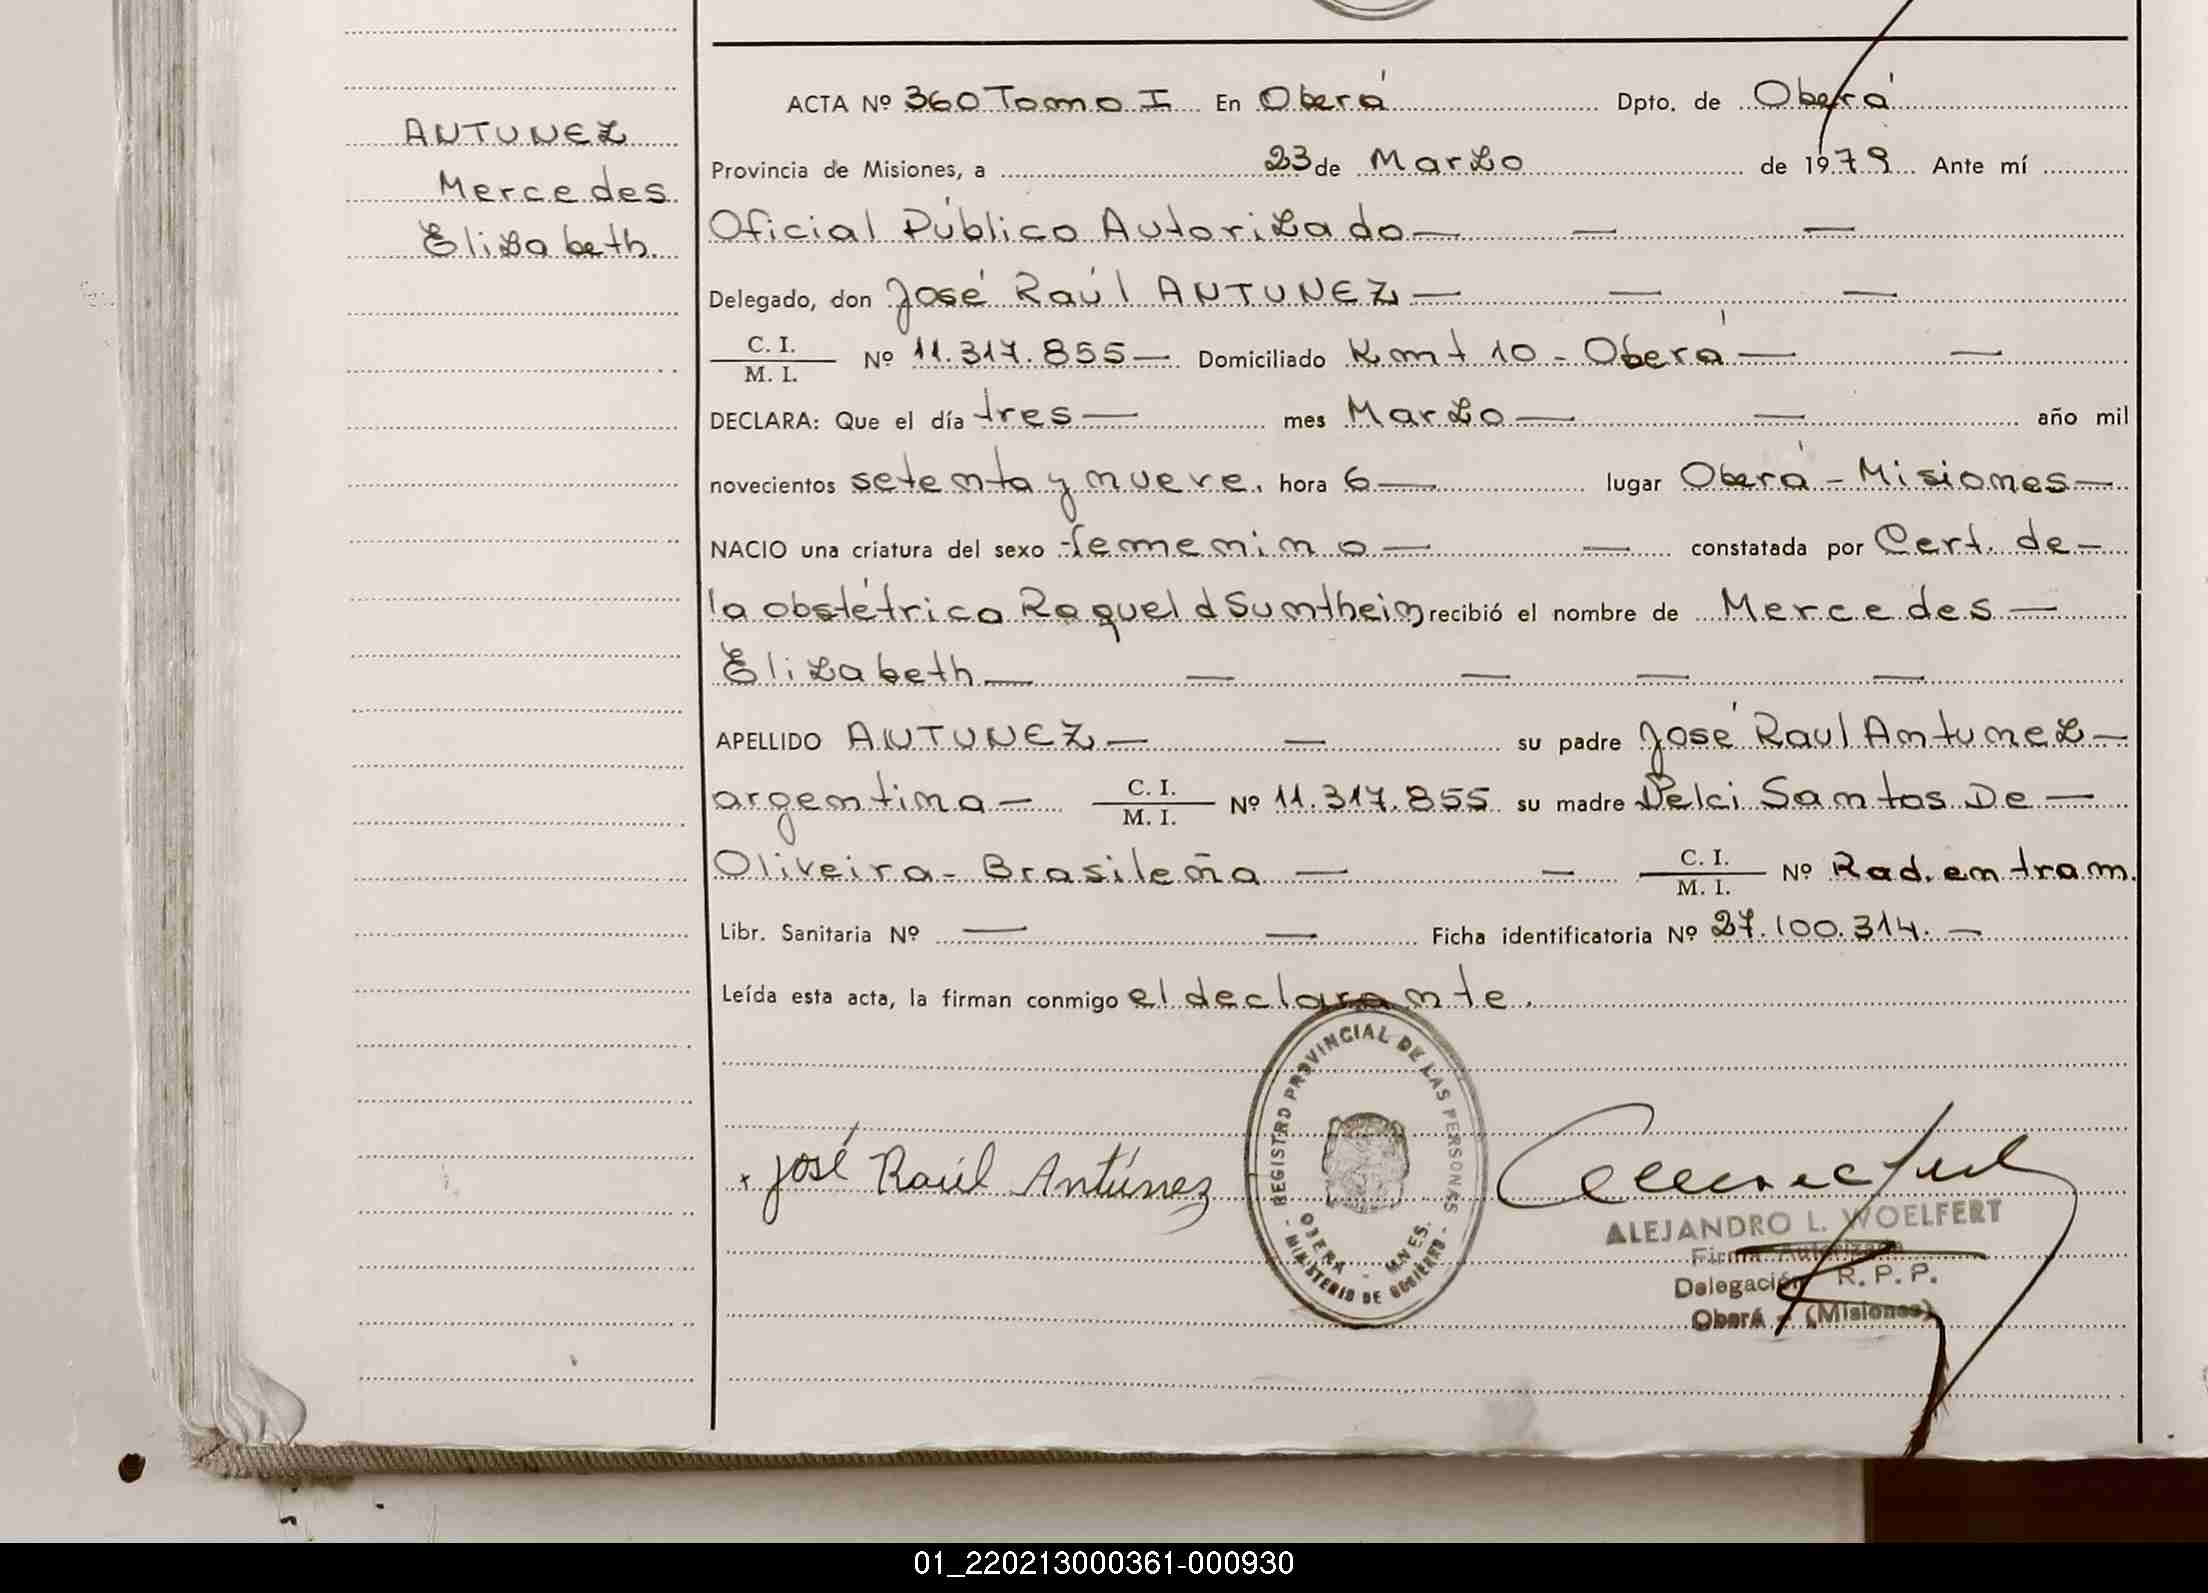 ANTUNEZ
Mercedes
Elizabeth.
ACTA Nº 360 Tomo I En Oberá Dpto. de Oberá
Provincia de Misiones, a 23 de Marzo de 1979 Ante mí
Oficial Público Autorizado — — —
Delegado, don José Raúl ANTUNEZ — — —
C. I.
M. I. Nº 11.317.855 — Domiciliado Kmt 10 - Oberá — —
DECLARA: Que el día tres — mes Marzo — — año mil
novecientos setenta y nueve. hora 6 — lugar Oberá - Misiones —
NACIO una criatura del sexo femenino — — constatada por Cert. de —
la obstétrica Raquel d Suntheim recibió el nombre de Mercedes —
Elizabeth — — — — —
APELLIDO ANTUNEZ — — su padre José Raul Antunez —
argentina — C. I.
M. I. Nº 11.317.855 su madre Delci Santos De —
Oliveira - Brasileña — — C. I.
M. I. Nº Rad. en tram.
Libr. Sanitaria Nº — — Ficha identificatoria Nº 27.100.314. —
Leída esta acta, la firman conmigo el declarante.
REGISTRO PROVINCIAL DE LAS PERSONAS
OBERA - MNES.
- MINISTERIO DE GOBIERNO -
x José Raúl Antúnez
ALEJANDRO L. WOELFERT
Firma Autorizada
Delegación R. P. P.
Oberá - (Misiones)
01_220213000361-000930